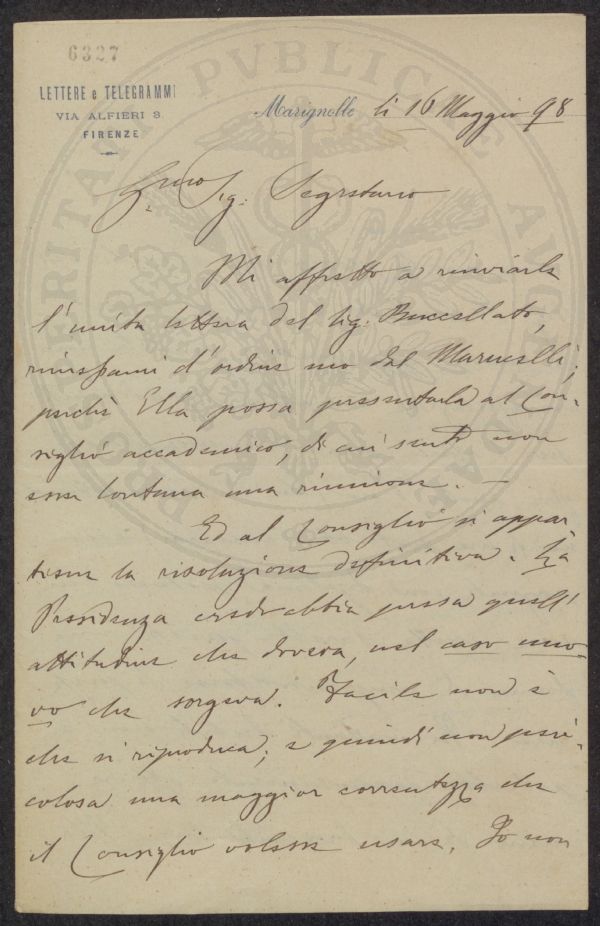 6327
LETTERE e TELEGRAMMI
VIA ALFIERI 8.
FIRENZE
Marignolle li 16 Maggio 98
Sig: Segretario
Mi affretto a rinviarle
l'unita lettera del Sig: Buccellato,
d'ordine suo dal Marucelli,
perchè Ella possa presentarla al Con-
siglio accademico, di cui sento non
esser lontana una riunione. —
Ed al Consiglio si appar-
tiene la risoluzione definitiva. La
Presidenza credo abbia presa quell'
attitudine che doveva, nel caso nuo-
vo che sorgeva. Facile non è
che si riproduca; e quindi non peri-
colosa una maggior correntezza che
il Consiglio volesse usare. Io non